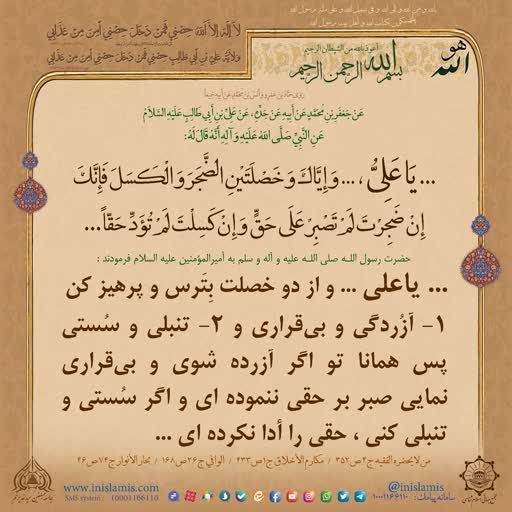 لا إله إلا الله حصني فمن دخل حصني أمن من عذابي
ولاية علي بن أبي طالب حصني فمن دخل حصني أمن من عذابي
هو
الله
أعوذ بالله من الشيطان الرجيم
بسم الله الرحمن الرحيم
عَنْ جَعْفَرِ بْنِ مُحَمَّدٍ عَنْ أَبِيهِ عَنْ جَدِّهِ، عَنْ عَلِيِّ بْنِ أَبِي طَالِبٍ عَلَيْهِ السَّلَامُ
عَنِ النَّبِيِّ صَلَّى اللهُ عَلَيْهِ وَآلِهِ أَنَّهُ قَالَ لَهُ:
... يَا عَلِيُّ ، ... وَإِيَّاكَ وَخَصْلَتَيْنِ الضَّجَرَ وَالْكَسَلَ فَإِنَّكَ
إِنْ ضَجِرْتَ لَمْ تَصْبِرْ عَلَى حَقٍّ وَإِنْ كَسِلْتَ لَمْ تُؤَدِّ حَقّاً...
حضرت رسول الله صلی الله علیه و آله و سلم به أمیرالمؤمنین علیه السلام فرمودند :
... یاعلی ... و از دو خصلت بِتَرس و پرهیز کن
۱- آزُردگی و بی‌قراری و ۲- تنبلی و سُستی
پس همانا تو اگر آزرده شوی و بی‌قراری
نمایی صبر بر حقی ننموده ای و اگر سُستی و
تنبلی کنی ، حقی را أدا نکرده ای ...
من لا یحضره الفقیه ج۴ص۳۵۲ / مکارم الأخلاق ج۱ص۴۳۳ / الوافي ج۲۶ص۱۶۸ / بحار الأنوار ج۷۴ص۴۶
www.inislamis.com
SMS system : 10001166110
@inislamis
سامانه پیامک : ۱۰۰۰۱۱۶۶۱۱۰